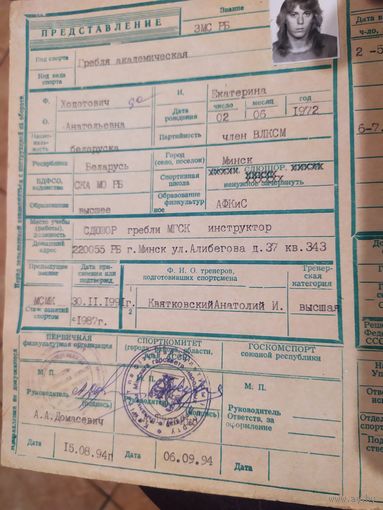 Звание
ПРЕДСТАВЛЕНИЕ ЗМС РБ
Вид спорта Гребля академическая
Код вида спорта
Ф. Ходотович И. Екатерина
О. Анатольевна Дата рождения число месяц год
02 06 1972
Национальность беларуска Партийность член ВЛКСМ
Республика Беларусь Город (село, поселок) Минск
ВДФСО, ведомство СКА МО РБ Спортивная школа СДЮШОР
ненужное зачеркнуть
Образование высшее Образование физкультурное АФКиС
Место учебы (работы), должность СДЮШОР гребли МГСК инструктор
Домашний адрес 220055 РБ г. Минск ул. Алибегова д. 37 кв. 343
Предыдущее звание Дата присвоения или подтвержд. Ф. И. О. тренеров, подготовивших спортсмена Тренерская категория
МСМК 30.II.1991г. 1 Квятковский Анатолий И. высшая
Стаж занятий спортом с 1987г. 2
ПЕРВИЧНАЯ физкультурная организация СПОРТКОМИТЕТ ГОСКОМСПОРТ союзной республики
М. П. М. П. М. П.
Руководитель Руководитель Руководитель
(подпись) (подпись) Ответств. за оформление
А.А.Домасевич
Дата 15.08.94г Дата 06.09.94 Дата